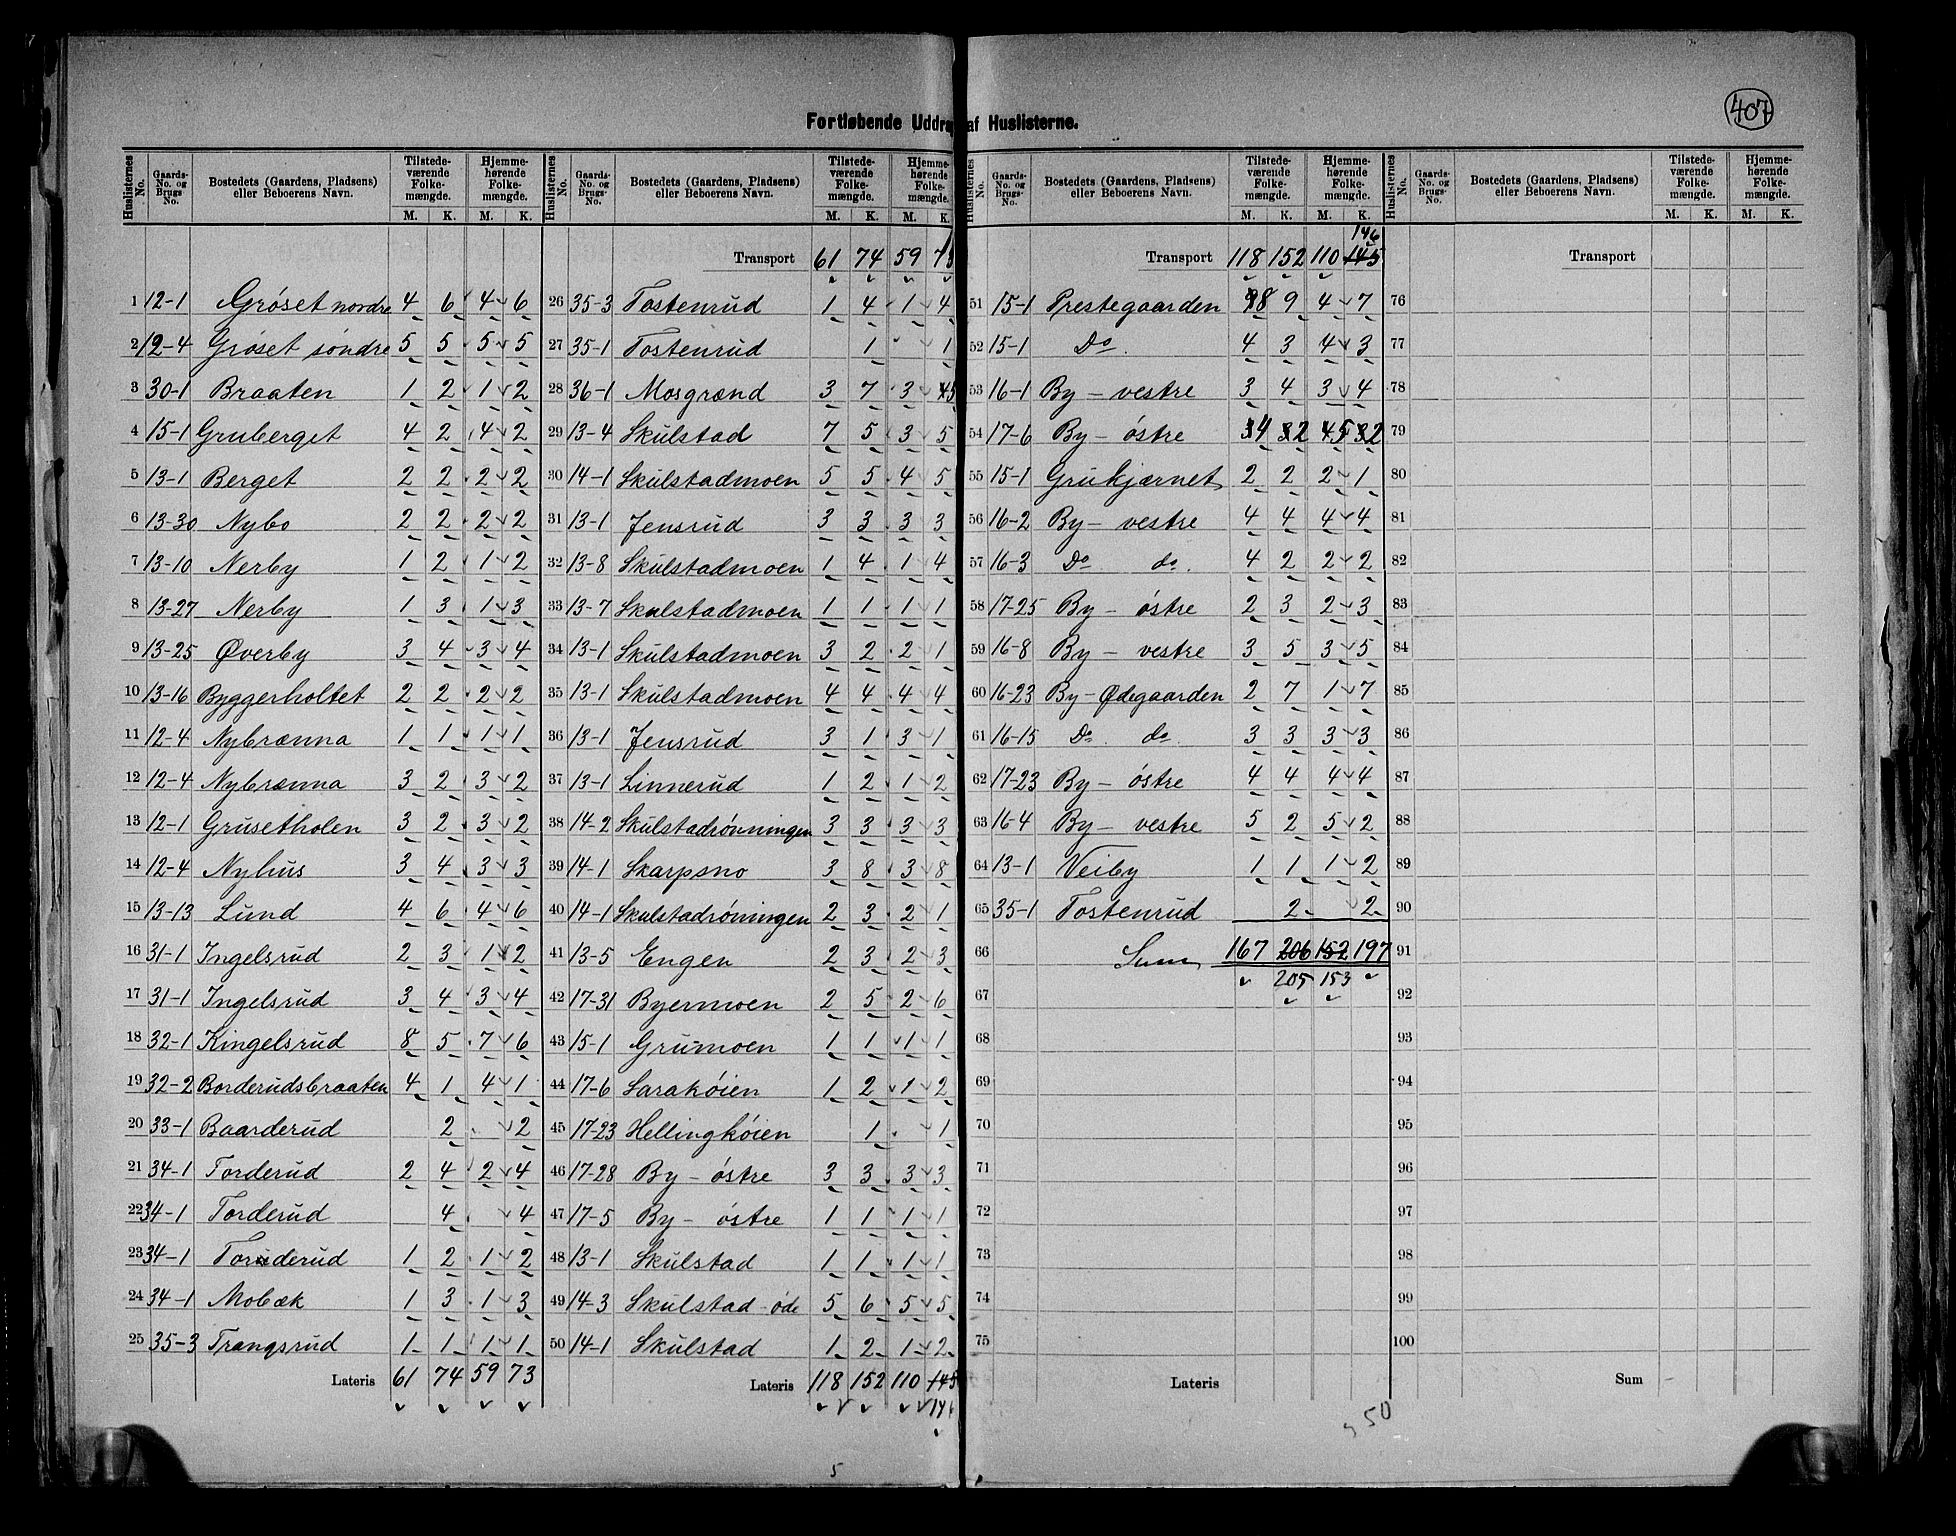 407
Fortløbende Uddrag af Huslisterne.
Huslisternes No. | Gaards-No. og Brugs-No. | Bostedets (Gaardens, Pladsens) eller Beboerens Navn. | Tilstedeværende Folkemængde. M. K. | Hjemmehørende Folkemængde. M. K.
1 12-1 Grøset nordre 4 6 4 6
2 12-4 Grøset søndre 5 5 5 5
3 30-1 Braaten 1 2 1 2
4 15-1 Gruberget 4 2 4 2
5 13-1 Berget 2 2 2 2
6 13-30 Nybo 2 2 2 2
7 13-10 Nerby 1 2 1 2
8 13-27 Nerby 1 3 1 3
9 13-25 Øverby 3 4 3 4
10 13-16 Byggerholtet 2 2 2 2
11 12-4 Nybrænna 1 1 1 1
12 12-4 Nybrænna 3 2 3 2
13 12-1 Grusetholen 3 2 3 2
14 12-4 Nyhus 3 4 3 3
15 13-13 Lund 4 6 4 6
16 31-1 Ingelsrud 2 3 1 2
17 31-1 Ingelsrud 3 4 3 4
18 32-1 Kingelsrud 8 5 7 6
19 32-2 Borderudsbraaten 4 1 4 1
20 33-1 Baarderud 2 2
21 34-1 Torderud 2 4 2 4
22 34-1 Torderud 4 4
23 34-1 Torderud 1 2 1 2
24 34-1 Mobæk 1 3 1 3
25 35-3 Trangsrud 1 1 1 1
Lateris 61 74 59 73
Huslisternes No. | Gaards-No. og Brugs-No. | Bostedets (Gaardens, Pladsens) eller Beboerens Navn. | Tilstedeværende Folkemængde. M. K. | Hjemmehørende Folkemængde. M. K.
Transport 61 74 59 73
26 35-3 Tostenrud 1 4 1 4
27 35-1 Tostenrud 1 1
28 36-1 Mosgrænd 3 7 3 5
29 13-4 Skulstad 7 5 3 5
30 14-1 Skulstadmoen 5 5 4 5
31 13-1 Jensrud 3 3 3 3
32 13-8 Skulstadmoen 1 4 1 4
33 13-7 Skulstadmoen 1 1 1 1
34 13-1 Skulstadmoen 3 2 2 1
35 13-1 Skulstadmoen 4 4 4 4
36 13-1 Jensrud 3 1 3 1
37 13-1 Linnerud 1 2 1 2
38 14-2 Skulstadrønningen 3 3 3 3
39 14-1 Skarpsno 3 8 3 8
40 14-1 Skulstadröningen 2 3 2 1
41 13-5 Engen 2 3 2 3
42 17-31 Byermoen 2 5 2 6
43 15-1 Grumoen 1 1 1 1
44 17-6 Sarakøien 1 2 1 2
45 17-23 Hellingkøien 1 1
46 17-28 By - östre 3 3 3 3
47 17-5 By - östre 1 1 1 1
48 13-1 Skulstad 1 1 1 1
49 14-3 Skulstad-øde 5 6 5 5
50 14-1 Skulstad 1 2 1 2
Lateris 118 152 110 145
146
5
Huslisternes No. | Gaards-No. og Brugs-No. | Bostedets (Gaardens, Pladsens) eller Beboerens Navn. | Tilstedeværende Folkemængde. M. K. | Hjemmehørende Folkemængde. M. K.
146
Transport 118 152 110 145
51 15-1 Prestegaarden 8 9 4 7
52 15-1 Do. 4 3 4 3
53 16-1 By - vestre 3 4 3 4
54 17-6 By - östre 34 32 45 32
55 15-1 Grukjærnet 2 2 2 1
56 16-2 By - vestre 4 4 4 4
57 16-3 Do do. 4 2 2 2
58 17-25 By - östre 2 3 2 3
59 16-8 By - vestre 3 5 3 5
60 16-23 By - Ødegaarden 2 7 1 7
61 16-15 Do. do. 3 3 3 3
62 17-23 By - östre 4 4 4 4
63 16-4 By - vestre 5 2 5 2
64 13-1 Veiby 1 1 1 2
65 35-1 Tostenrud 2 2
66 Sum 167 206 152 197
67 205 153
68
69
70
71
72
73
74
75
Lateris
50
Huslisternes No. | Gaards-No. og Brugs-No. | Bostedets (Gaardens, Pladsens) eller Beboerens Navn. | Tilstedeværende Folkemængde. M. K. | Hjemmehørende Folkemængde. M. K.
Transport
76
77
78
79
80
81
82
83
84
85
86
87
88
89
90
91
92
93
94
95
96
97
98
99
100
Sum